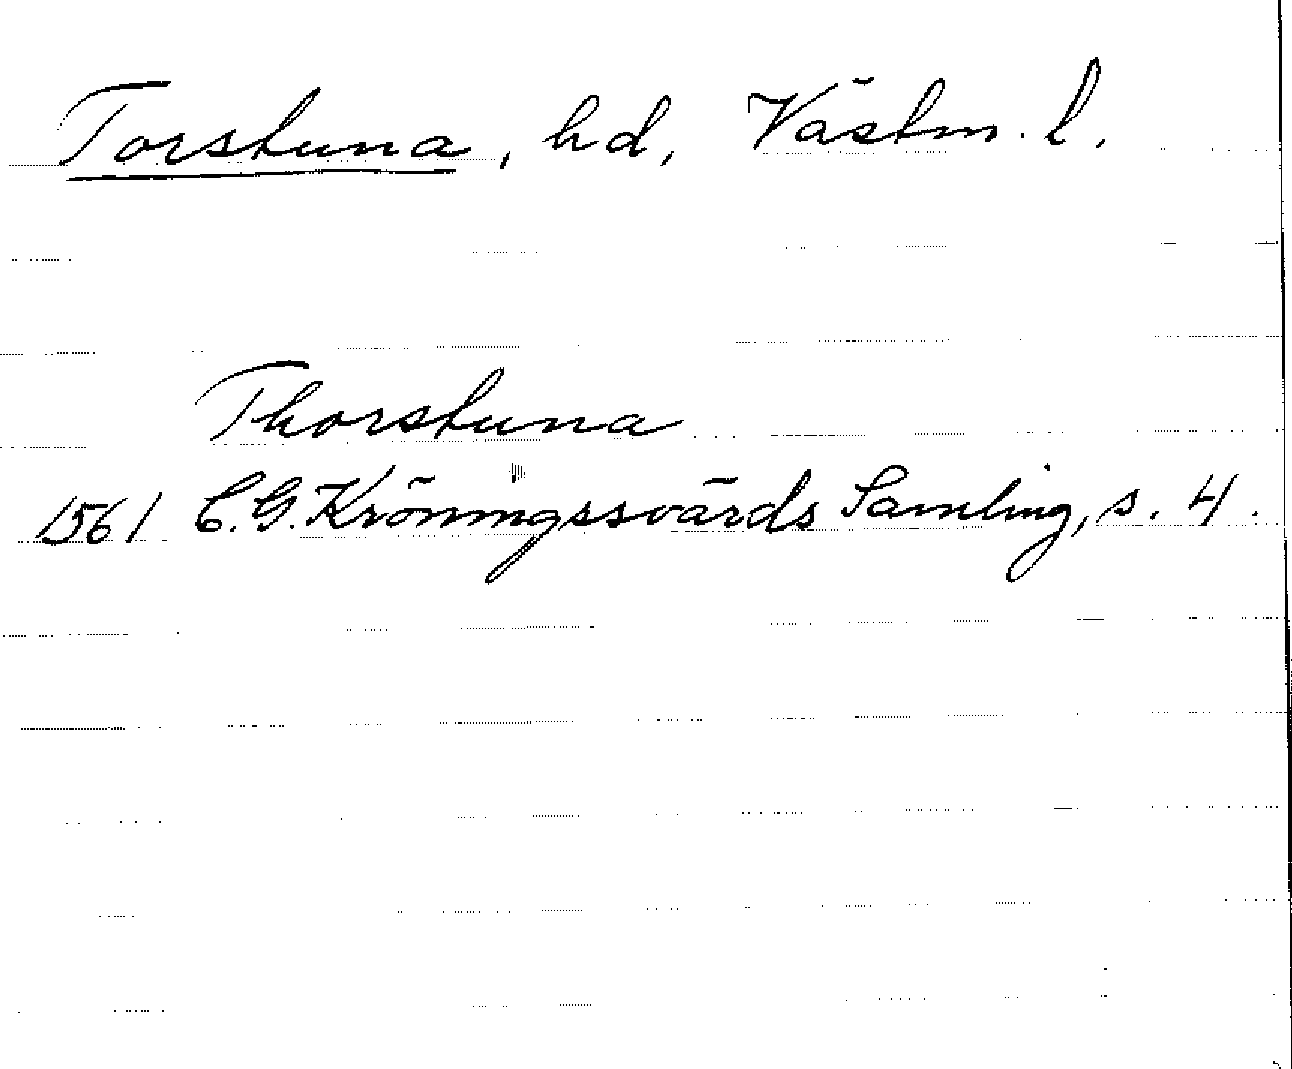 Torstuna, hd, Västm. l.
Thorstuna
1561 C.G. Kröningssvärds Samling, s. 4.